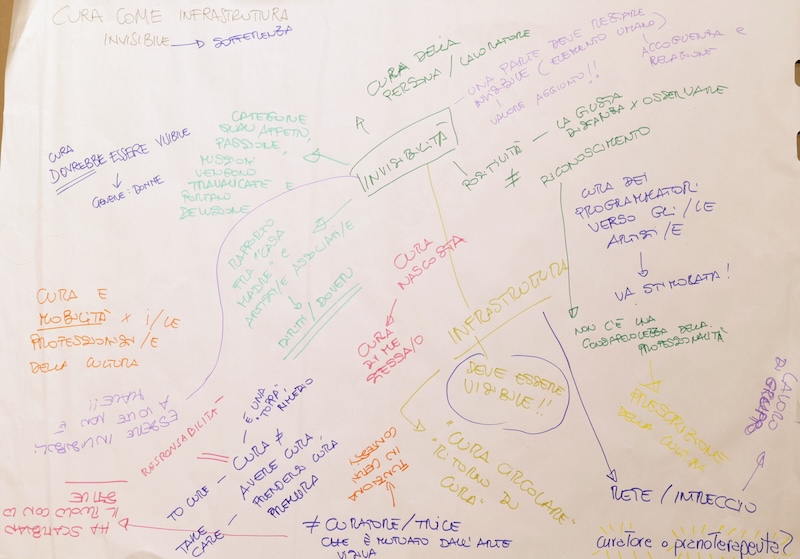 CURA COME INFRASTRUTTURA
INVISIBILE → SOFFERENZA
CURA DELLA
PERSONA / LAVORATORE
UNA PARTE DEVE RESTARE
INVISIBILE (ELEMENTO UMANO)
VALORE AGGIUNTO!!
ACCOGLIENZA E
RELAZIONE
CURA
DOVREBBE ESSERE VISIBILE
GENERE: DONNE
CATEGORIE
QUALI AFFETTI,
PASSIONE,
MISSION
VENGONO
TRAVALICATE E
PORTANO
DELUSIONE
INVISIBILITÀ
POSITIVITÀ — LA GIUSTA
DISTANZA X OSSERVARE
≠ RICONOSCIMENTO
CURA DEI
PROGRAMMATORI
VERSO GLI/LE
ARTISTI/E
VA STIMOLATA!
NON C'È UNA
CONSAPEVOLEZZA DELLA
PROFESSIONALITÀ
RAPPORTO
FRA "CASA
MADRE" E
ARTISTI/E ASSOCIATI/E
DIRITTI/DOVERI
CURA
NASCOSTA
CURA
DI ME
STESSA/O
INFRASTRUTTURA
DEVE ESSERE
VISIBILE!!
CURA E
MOBILITÀ X I/LE
PROFESSIONISTI/E
DELLA CULTURA
ESSERE INVISIBILI
A VOLTE NON È
MALE!!
RESPONSABILITÀ
È UNA
"TOPPA" RIMEDIO
TO CURE — CURA ≠
TAKE
CARE — AVERE CURA
PRENDERSI CURA
PREMURA
FUNZIONA
IN CERTI
CONTESTI
"CURA CIRCOLARE"
"RITORNO DI
CURA"
PRESCRIZIONE
DELLA CULTURA
LAVORO
DI GRUPPO
RETE / INTRECCIO
HA SCAMBIATO
IL RUOLO CON
≠ CURATORE/TRICE
CHE È MUTUATO DALL'ARTE
VISIVA
curatore o pranoterapeuta?